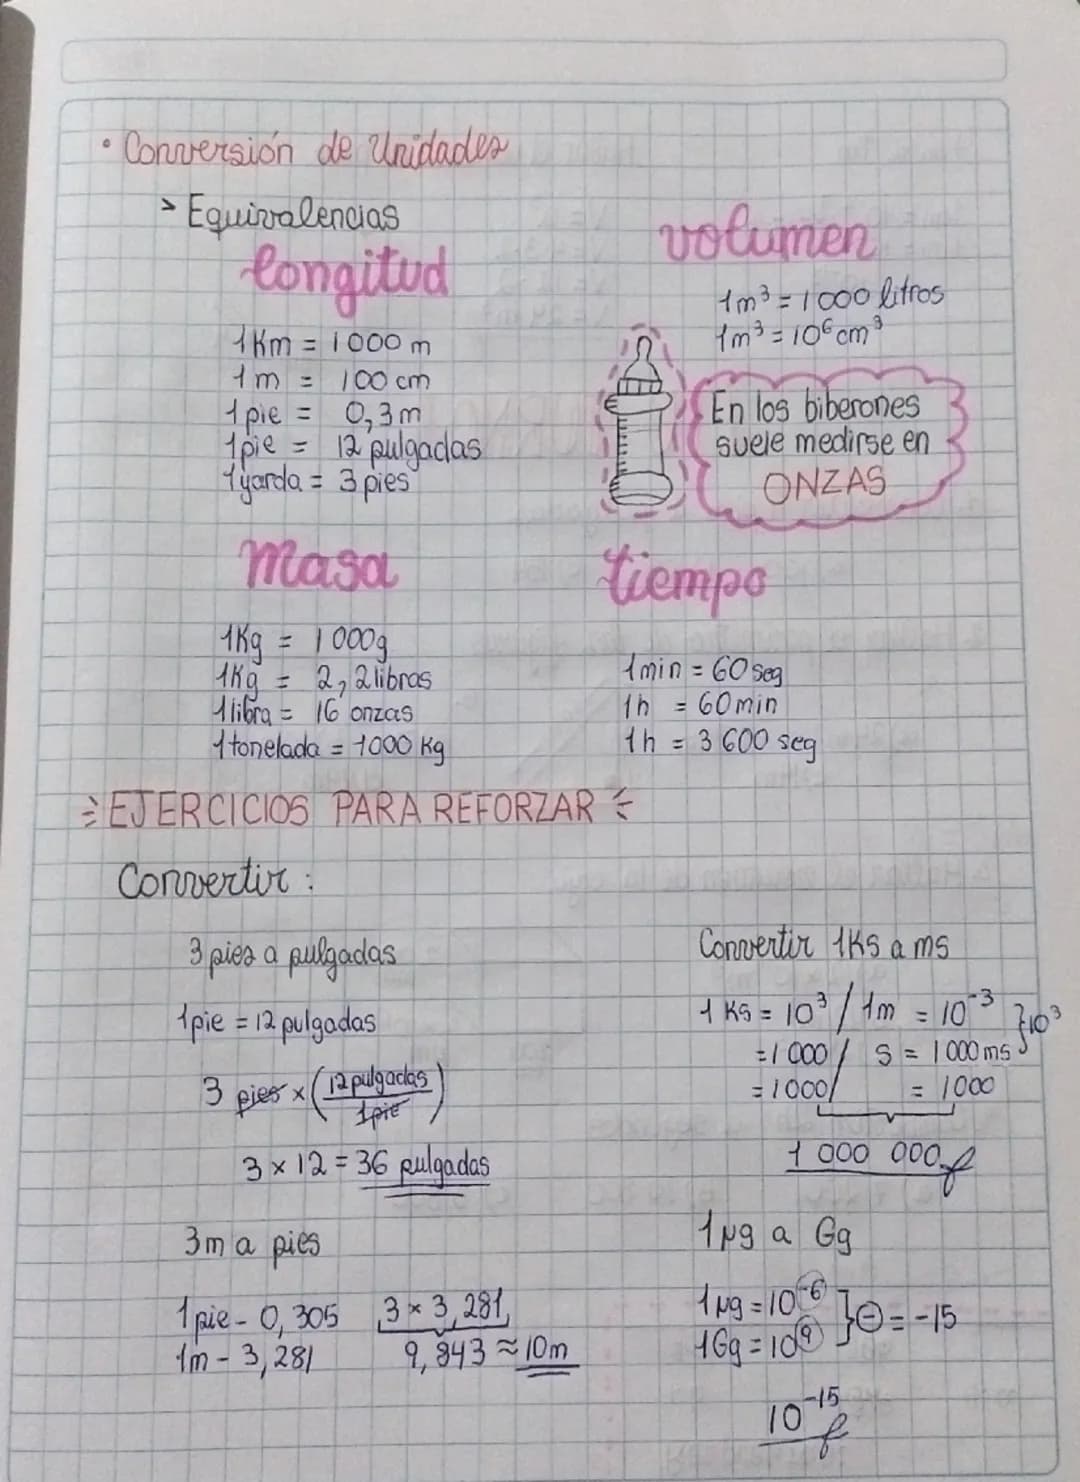 • Conversión de Unidades
> Equivalencias
longitud
1Km = 1000 m
1m = 100 cm
1pie = 0,3m
1pie = 12 pulgadas
1yarda = 3 pies
volumen
1m³ = 1000 litros
1m³ = 10⁶ cm³
En los biberones
suele medirse en
ONZAS
masa
1Kg = 1000g
1Kg = 2,2 libras
1 libra = 16 onzas
1 tonelada = 1000 Kg
tiempo
1min = 60 seg
1h = 60min
1h = 3 600 seg
EJERCICIOS PARA REFORZAR
Convertir:
3 pies a pulgadas
1pie = 12 pulgadas
3 pies x (12 pulgadas / 1pie)
3 x 12 = 36 pulgadas
3m a pies
1 pie - 0,305
1m - 3,281
3 x 3,281
9,843 ≈ 10m
Convertir 1Ks a ms
1 Ks = 10³ / 1m = 10⁻³ } 10³
= 1 000 / s = 1 000 ms
= 1000 / = 1000
1 000 000
1 µg a Gg
1 µg = 10⁻⁶ } ⊖ = -15
1Gg = 10⁹
10⁻¹⁵